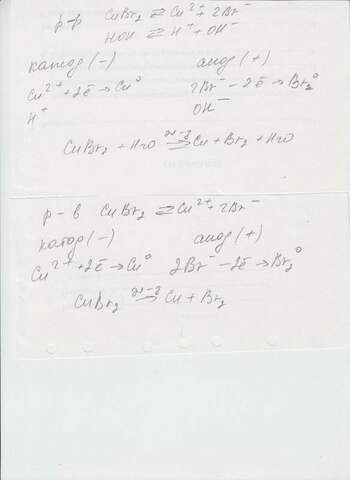 р-р CuBr₂ ⇄ Cu²⁺ + 2Br⁻
HOH ⇄ H⁺ + OH⁻
катод (-) анод (+)
Cu²⁺ + 2ē → Cu⁰ 2Br⁻ - 2ē → Br₂⁰
H⁺ OH⁻
CuBr₂ + H₂O эл-з → Cu + Br₂ + H₂O
р-в CuBr₂ ⇄ Cu²⁺ + 2Br⁻
катод (-) анод (+)
Cu²⁺ + 2ē → Cu⁰ 2Br⁻ - 2ē → Br₂⁰
CuBr₂ эл-з → Cu + Br₂